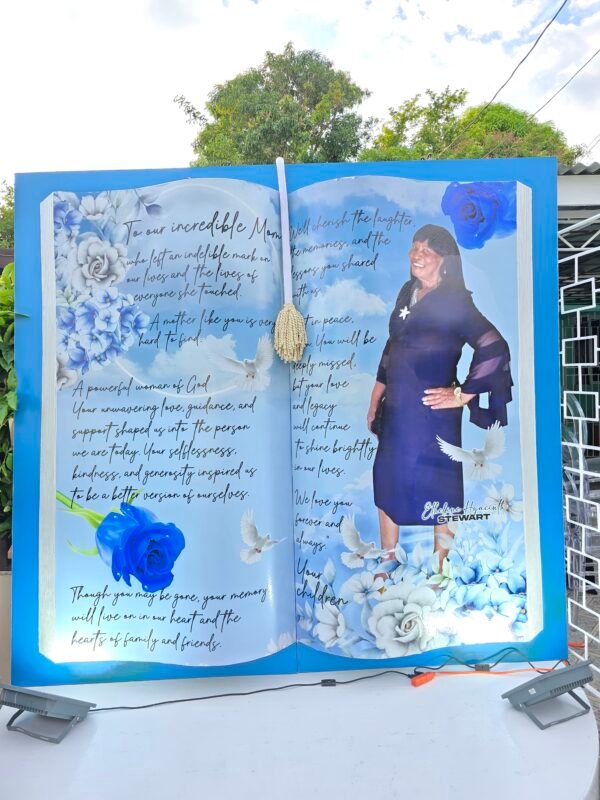 To our incredible Mom
who left an indelible mark on
our lives and the lives of
everyone she touched.
A mother like you is very
hard to find.
A powerful woman of God
Your unwavering love, guidance, and
support shaped us into the person
we are today. Your selflessness,
kindness, and generosity inspired us
to be a better version of ourselves.
Though you may be gone, your memory
will live on in our heart and the
hearts of family and friends.
We'll cherish the laughter,
memories, and the
essons you shared
ith us.
in peace,
You will be
eeply missed,
but your love
and legacy
will continue
to shine brightly
in our lives.
We love you
forever and
always."
Your
children
Hyacinth
STEWART